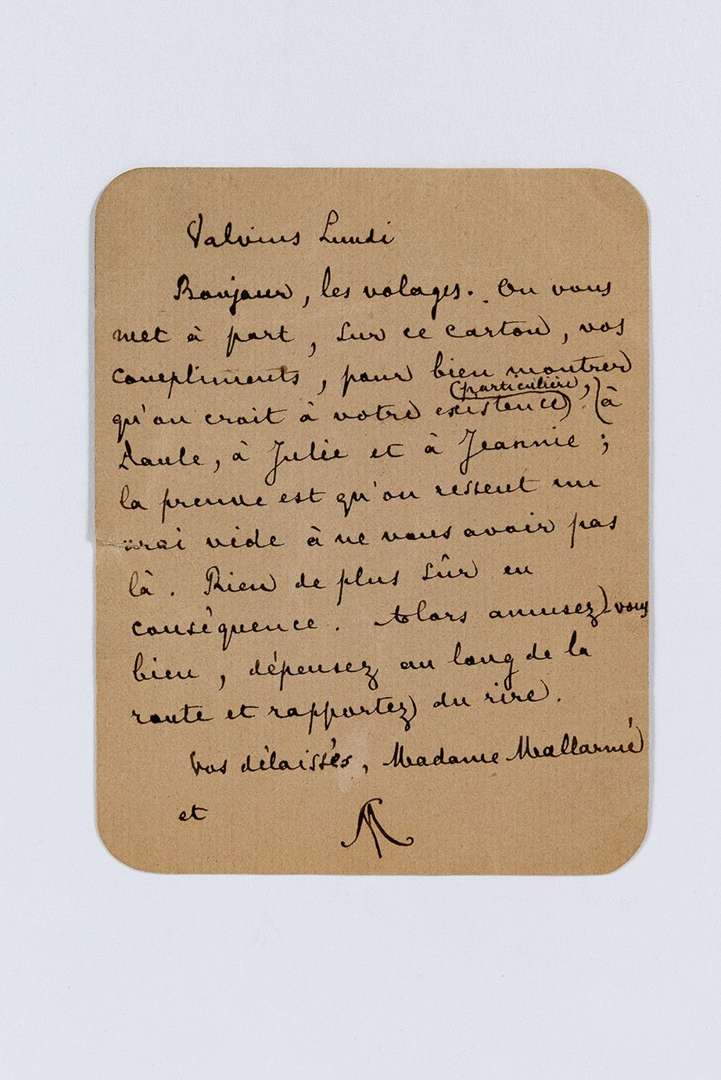 Valvins Lundi
Bonjour, les volages. On vous
met à part, sur ce carton, vos
compliments, pour bien montrer
qu'on croit à votre existence (particulière), (à
Paule, à Julie et à Jeannie ;
la preuve est qu'on ressent un
vrai vide à ne vous avoir pas
là. Rien de plus sûr en
conséquence. Alors amusez-vous
bien, dépensez au long de la
route et rapportez du rire.
Vos délaissés, Madame Mallarmé
et SM